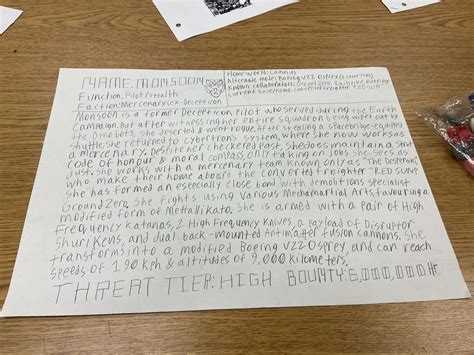 NAME: MONSOON
Function: Pilot/stealth
Faction: Mercenary (ex Decepticon)
Home world: Caminus
Alternate mode: Boeing V22 Osprey
Known collaborators: Ground Zero,
Current base/home: converted freighter "RED SUN"
Monsoon is a former Decepticon pilot who served during the Earth
Campaign. But after witnessing her entire squadron being wiped out by
the Dinobots, she deserted & went rogue. After stealing a starbridge equipped
shuttle, she returned to Cybertron's system, where she now works as
a mercenary. Despite her checkered past, she does maintain a strict
code of honour & moral compass, only taking on jobs she sees as
just. She works with a mercenary team known only as "The Desperados"
who make their home aboard the converted freighter "RED SUN"
she has formed an especially close bond with demolitions specialist
Ground Zero. She fights using various Mecha martial Arts, favouring a
modified form of Metallikato. She is armed with a pair of High
Frequency Katanas, 2 High Frequency Knives, a payload of Disruptor
Shurikens, and dual back-mounted Antimatter fusion cannons. She
transforms into a modified Boeing V22 Osprey, and can reach
speeds of 190 kph & altitudes of 9,000 kilometers.
THREAT TIER: HIGH BOUNTY: 6,000,000